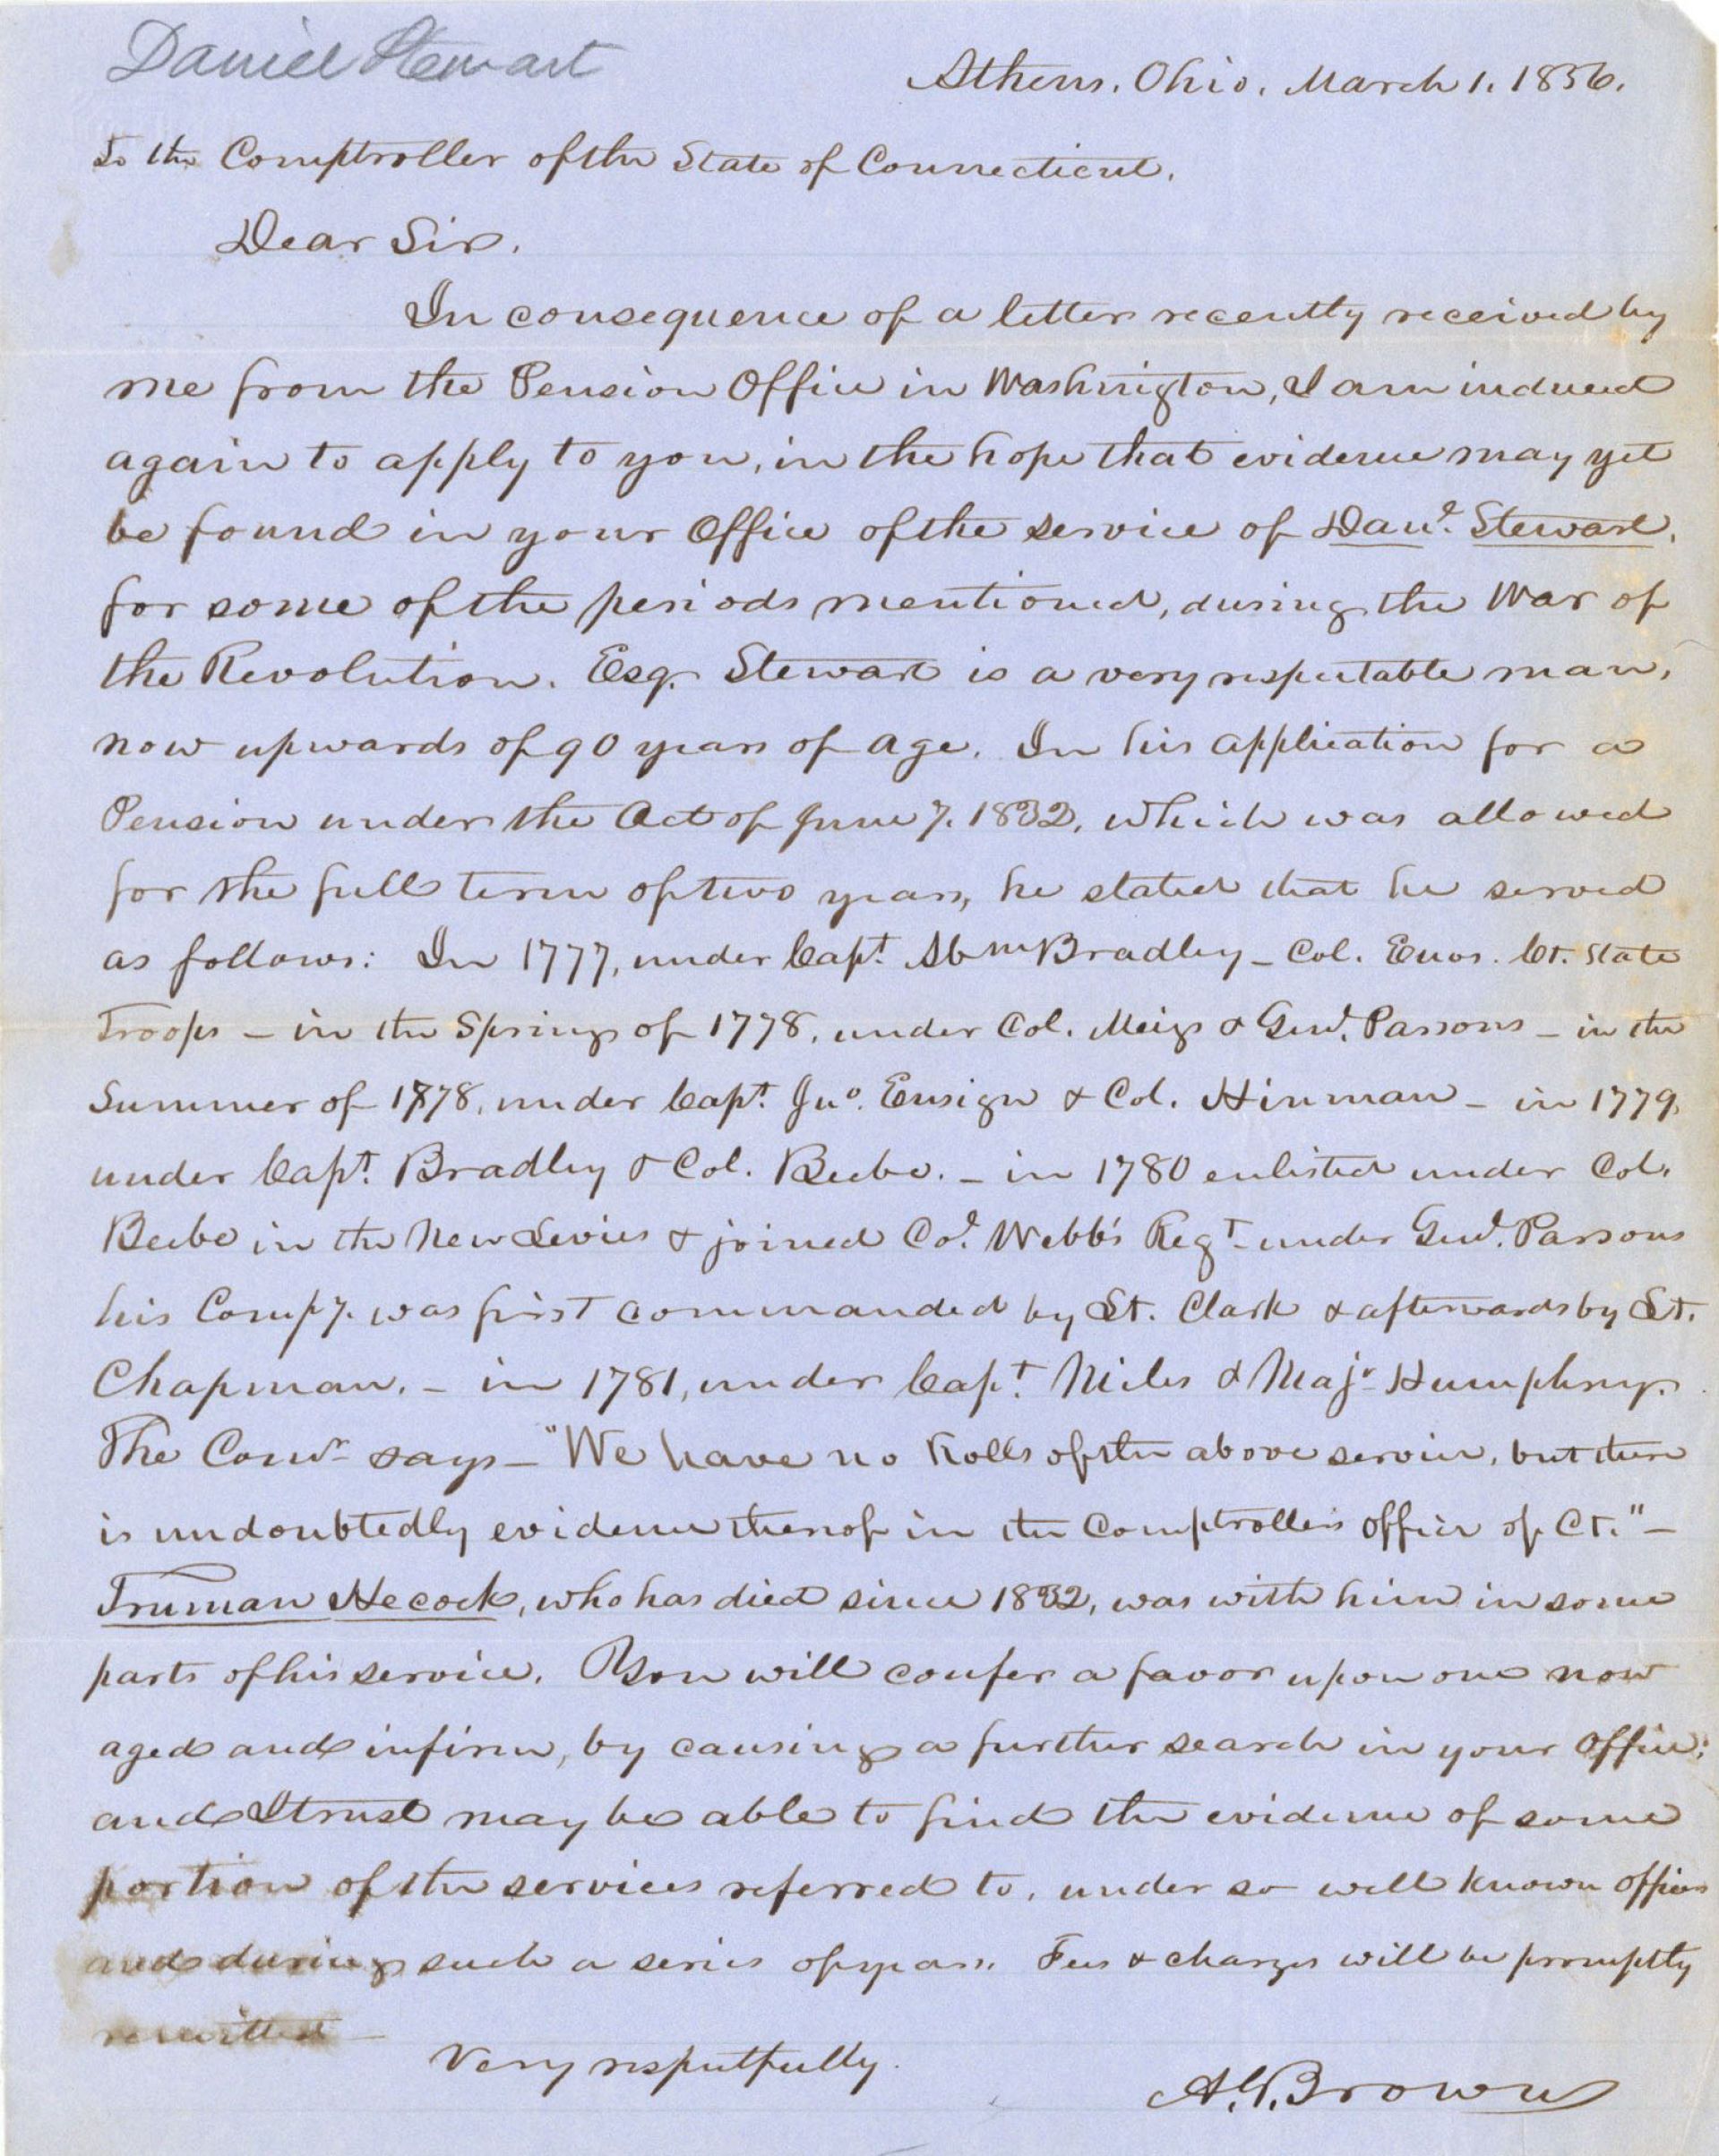 Daniel Stewart
Athens, Ohio, March 1. 1856.
To the Comptroller of the State of Connecticut.
Dear Sir.
In consequence of a letter recently received by
me from the Pension Office in Washington, I am induced
again to apply to you, in the hope that evidence may yet
be found in your Office of the service of Danl. Stewart,
for some of the periods mentioned, during the War of
the Revolution. Esq. Stewart is a very respectable man,
now upwards of 90 years of age. In his application for a
Pension under the Act of June 7. 1832, which was allowed
for the full term of two years, he stated that he served
as follows: In 1777, under Capt. Abm Bradley – Col. Enos. Ct. State
Troops – in the Spring of 1778, under Col. Meigs & Genl. Parsons – in the
Summer of 1778, under Capt. Jno. Ensign & Col. Hinman – in 1779,
under Capt. Bradley & Col. Beebe. – in 1780 enlisted under Col.
Beebe in the New Levies & joined Col. Webb's Regt. under Genl. Parsons
his Compy. was first commanded by Lt. Clark & afterwards by Lt.
Chapman. – in 1781, under Capt. Niles & Majr. Humphrey.
The Comr. says – "We have no Rolls of the above service, but there
is undoubtedly evidence thereof in the Comptrollers office of Ct." –
Truman Hecock, who has died since 1832, was with him in some
parts of his service. You will confer a favor upon one now
aged and infirm, by causing a further search in your Office;
and I trust may be able to find the evidence of some
portion of the services referred to, under so well known officers
and during such a series of years. Fees & charges will be promptly
remitted –
Very respectfully.
A. G. Brown